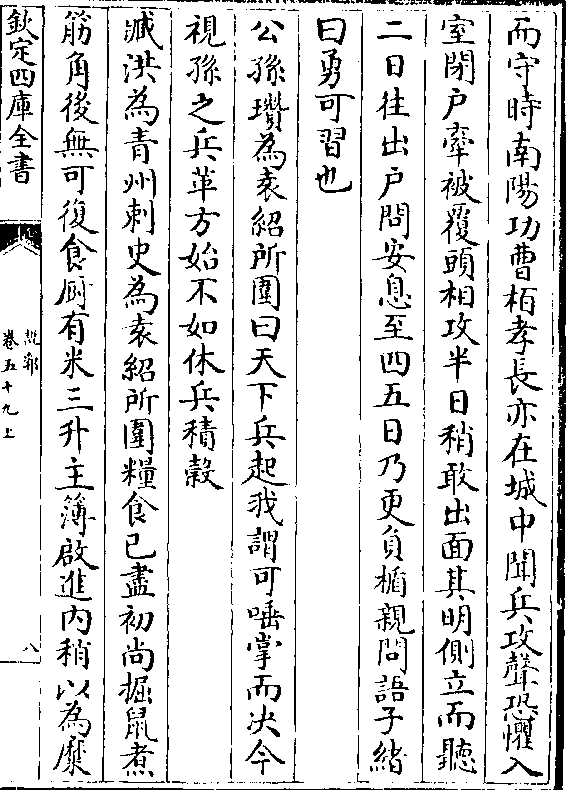 而守時南陽功曹栢孝長亦在城中聞兵攻聲恐懼入
室閉户牽被覆頭相攻半日稍敢出面其明側立而聽
二日往出户問安息至四五日乃更負楯親問語子緒
曰勇可習也
公孫瓚為袁紹所圍曰天下兵起我謂可唾掌而决今
視孫之兵革方始不如休兵積穀
臧洪為青州刺史為袁紹所圍糧食已盡初尚掘鼠煮
筋角後無可復食厨有米三升主簿啟進内稍以為糜
欽定四庫全書
説郛
卷五十九上
八